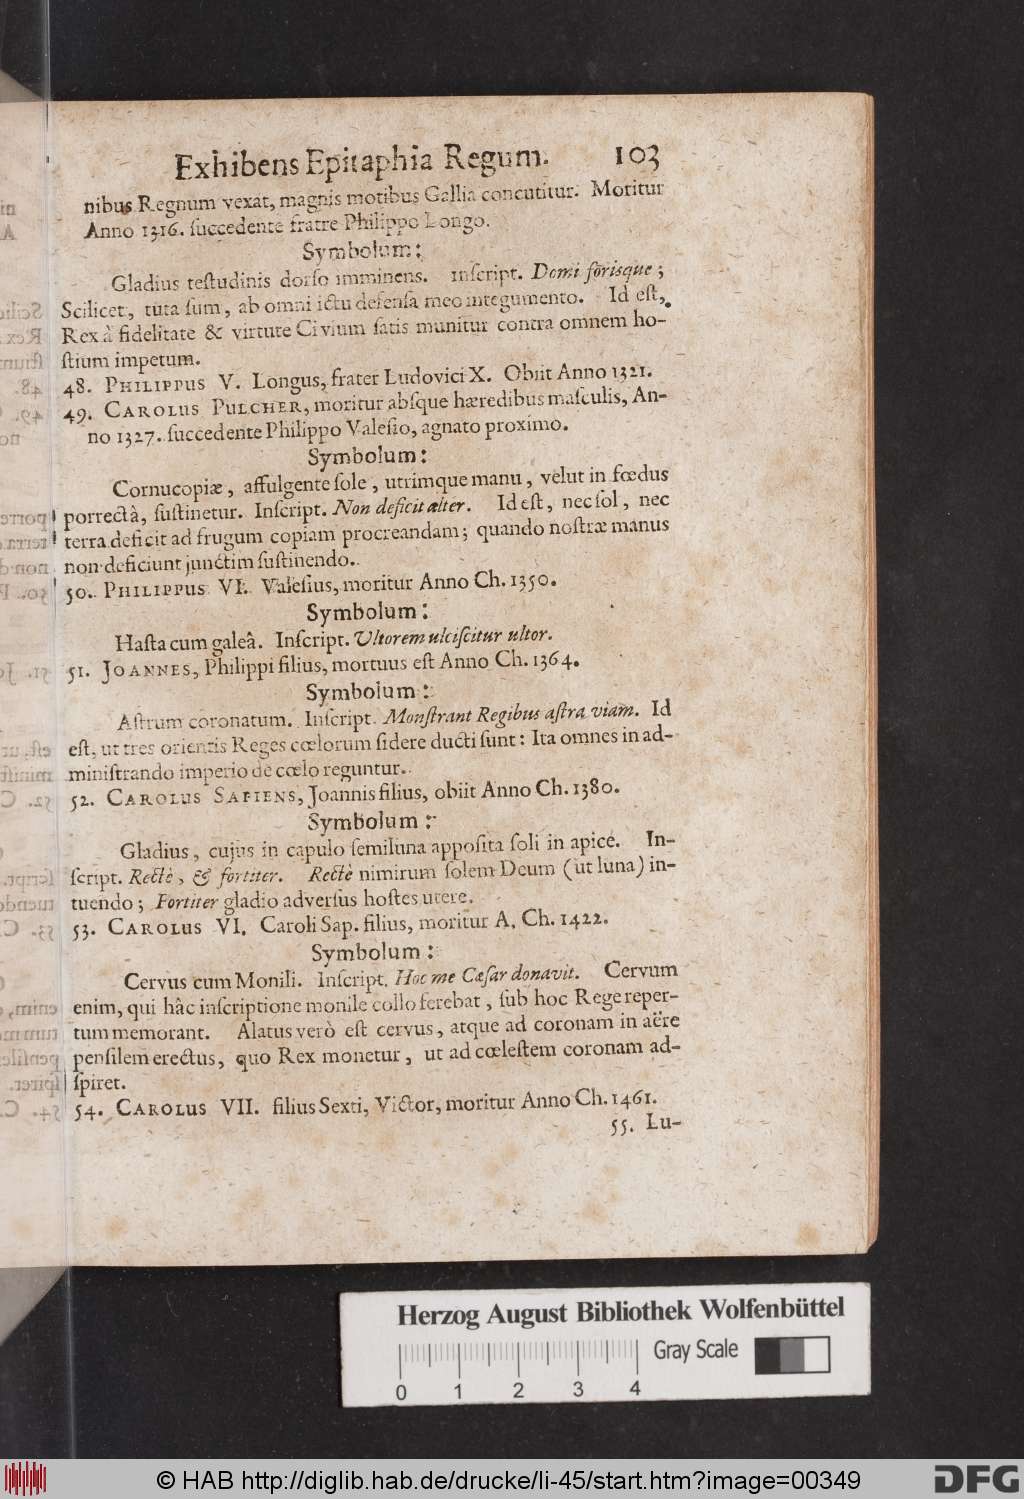 Exhibens Epitaphia Regum. 103
nibus Regnum vexat, magnis motibus Gallia concutitur. Moritur
Anno 1316. ſuccedente fratre Philippo Longo.
Symbolum:
Gladius teſtudinis dorſo imminens. Inſcript. Domi foriſque;
Scilicet, tuta ſum, ab omni ictu defenſa meo integumento. Id eſt,
Rex à fidelitate & virtute Civium ſatis munitur contra omnem ho-
ſtium impetum.
48. PHILIPPUS V. Longus, frater Ludovici X. Obiit Anno 1321.
49. CAROLUS PULCHER, moritur abſque hæredibus maſculis, An-
no 1327. ſuccedente Philippo Valeſio, agnato proximo.
Symbolum:
Cornucopiæ, affulgente ſole, utrimque manu, velut in fœdus
porrectà, ſuſtinetur. Inſcript. Non deficit alter. Id eſt, nec ſol, nec
terra deficit ad frugum copiam procreandam; quando noſtræ manus
non deficiunt junctim ſuſtinendo.
50. PHILIPPUS VI. Valeſius, moritur Anno Ch. 1350.
Symbolum:
Haſta cum galeâ. Inſcript. Ultorem ulciſcitur ultor.
51. JOANNES, Philippi filius, mortuus eſt Anno Ch. 1364.
Symbolum:
Aſtrum coronatum. Inſcript. Monſtrant Regibus aſtra viam. Id
eſt, ut tres orientis Reges cœlorum ſidere ducti ſunt: Ita omnes in ad-
miniſtrando imperio de cœlo reguntur.
52. CAROLUS SAPIENS, Joannis filius, obiit Anno Ch. 1380.
Symbolum:
Gladius, cujus in capulo ſemiluna appoſita ſoli in apice. In-
ſcript. Rectè, & fortiter. Rectè nimirum ſolem Deum (ut luna) in-
tuendo; Fortiter gladio adverſus hoſtes utere.
53. CAROLUS VI. Caroli Sap. filius, moritur A. Ch. 1422.
Symbolum:
Cervus cum Monili. Inſcript. Hoc me Cæſar donavit. Cervum
enim, qui hâc inſcriptione monile collo ferebat, ſub hoc Rege reper-
tum memorant. Alatus verò eſt cervus, atque ad coronam in aëre
penſilem erectus, quo Rex monetur, ut ad cœleſtem coronam ad-
ſpiret.
54. CAROLUS VII. filius Sexti, Victor, moritur Anno Ch. 1461.
55. Lu-
Herzog August Bibliothek Wolfenbüttel
Gray Scale
0 1 2 3 4
© HAB http://diglib.hab.de/drucke/li-45/start.htm?image=00349
DFG